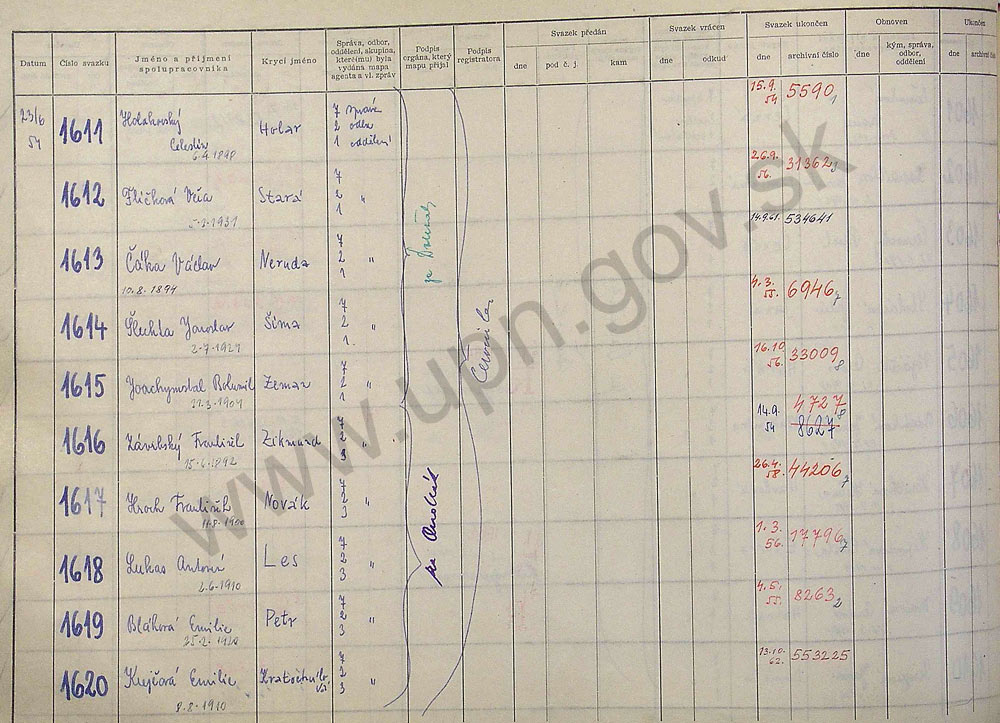 Datum
Číslo svazku
Jméno a příjmení
spolupracovníka
Krycí jméno
Správa, odbor,
oddělení, skupina,
které(mu) byla
vydána mapa
agenta a vl. zpráv
Podpis
orgána, který
mapu přijal
Podpis
registratora
Svazek předán
dne
pod č. j.
kam
Svazek vrácen
dne
odkud
Svazek ukončen
dne
archivní číslo
Obnoven
dne
kým, správa,
odbor,
oddělení
Ukončen
dne
archivní čís
23/6
54
1611
Celestin
6.4.1898
Holar
7 správa
2 odbor
1 oddělení
15.9.
54
5590
1
1612
Flíčková Věra
5.3.1931
Stará
7
2 "
1
26.9.
56.
31362
3
1613
Čáka Václav
10.8.1894
Neruda
7
2 "
1
14.9.61.
534641
1614
Šlechta Jaroslav
2-7-1921
Šíma
7
2 "
1.
4.3.
55.
6946
7
1615
Joachymstal Bohumil
21.3.1904
Zeman
7
2 "
1
16.10
56.
33009
8
1616
František
15.6.1892
Zikmund
7
2 "
3
14.9.
54
4727
8
8627
1617
Hroch František
11.8.1900
Novák
7
2 "
3
26.4.
58.
44206
7
1618
Lukas Antonín
2.6.1910
Les
7
2 "
3
1.3.
56.
17796
7
1619
Bláhová Emilie
25.2.1920
Petr
7
2 "
3
4.5.
55.
8263
2
1620
Krejčová Emilie
8.8.1910
Kratochvílo
vá
7
2 "
3
13.10.
62.
553225
za
Červinka
www.upn.gov.sk